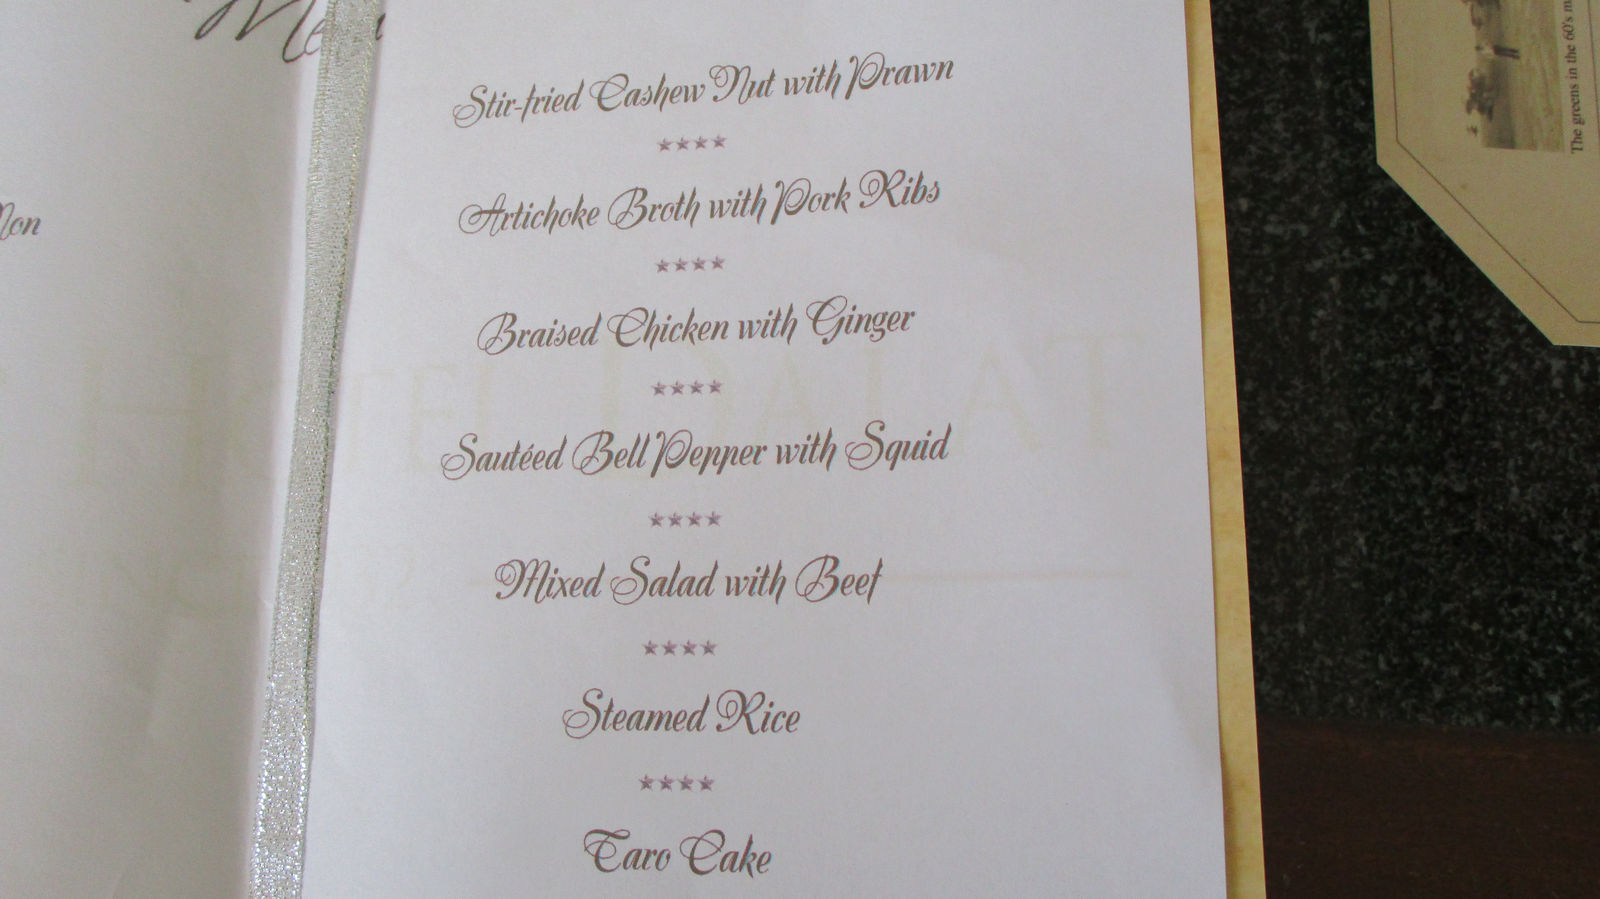 Stir-fried Cashew Nut with Prawn
****
Artichoke Broth with Pork Ribs
****
Braised Chicken with Ginger
****
Sautéed Bell Pepper with Squid
****
Mixed Salad with Beef
****
Steamed Rice
****
Taro Cake
The greens in the 60's